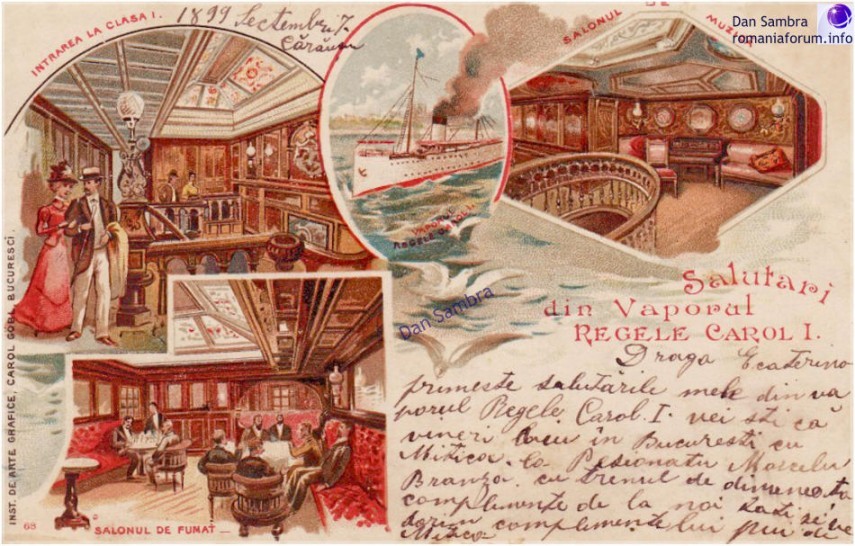 INTRAREA LA CLASA I.
1899 Septembre 7.
SALONUL DE MUZICA
Dan Sambra
romaniaforum.info
VAPORUL
REGELE CAROL I.
Dan Sambra
Salutari
din Vaporul
REGELE CAROL I.
Draga Ecaterino
primeste salutarile mele din va
porul Regele Carol. I. vei sti că
vineri in Bucuresti cu
Mitica. la Pesionatu
Branza. cu trenul de dimeneata
complimente de la noi
complimentelui
Mitica
INST. DE ARTE GRAFICE, CAROL GÖBL BUCURESCI.
68
SALONUL DE FUMAT